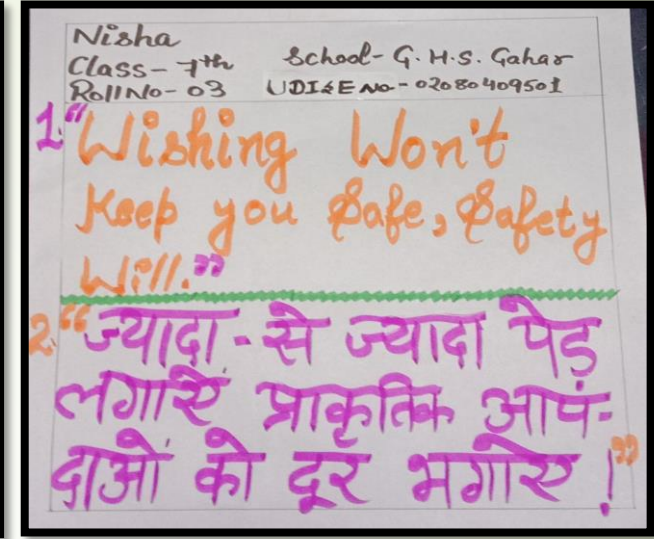 Nisha
Class- 7th School- G.H.S. Gahar
Roll No- 03 UDISE No- 02080409501
1. "Wishing Won't
Keep you Safe, Safety
Will."
2. "ज्यादा-से ज्यादा पेड़
लगाऐं प्राकृतिक आप-
दाओं को दूर भगाऐ!"